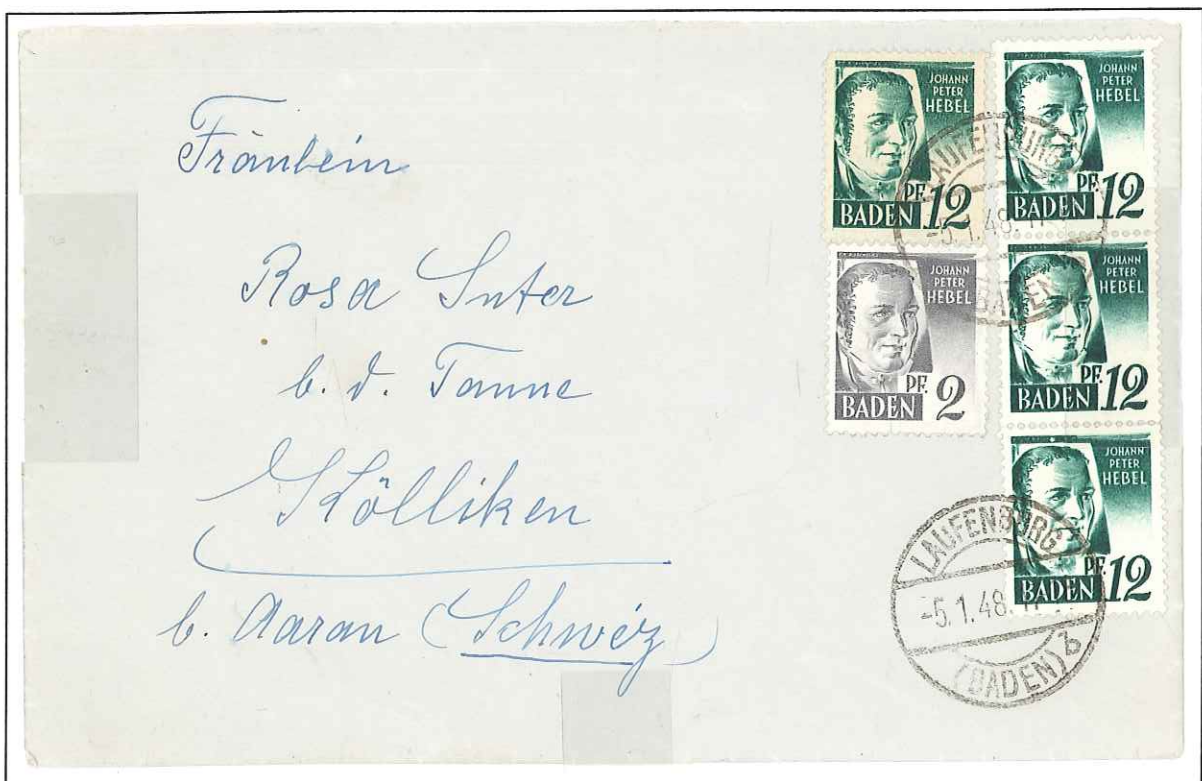 Fräulein
Rosa Suter
b. d. Tanne
Kölliken
b. Aarau (Schweiz)
JOHANN
PETER
HEBEL
PF. 12
BADEN
JOHANN
PETER
HEBEL
PF. 12
BADEN
JOHANN
PETER
HEBEL
PF. 2
BADEN
JOHANN
PETER
HEBEL
PF. 12
BADEN
JOHANN
PETER
HEBEL
PF. 12
BADEN
LAUFENBURG
-5.1.48.
(BADEN)
LAUFENBURG
-5.1.48.
(BADEN) b